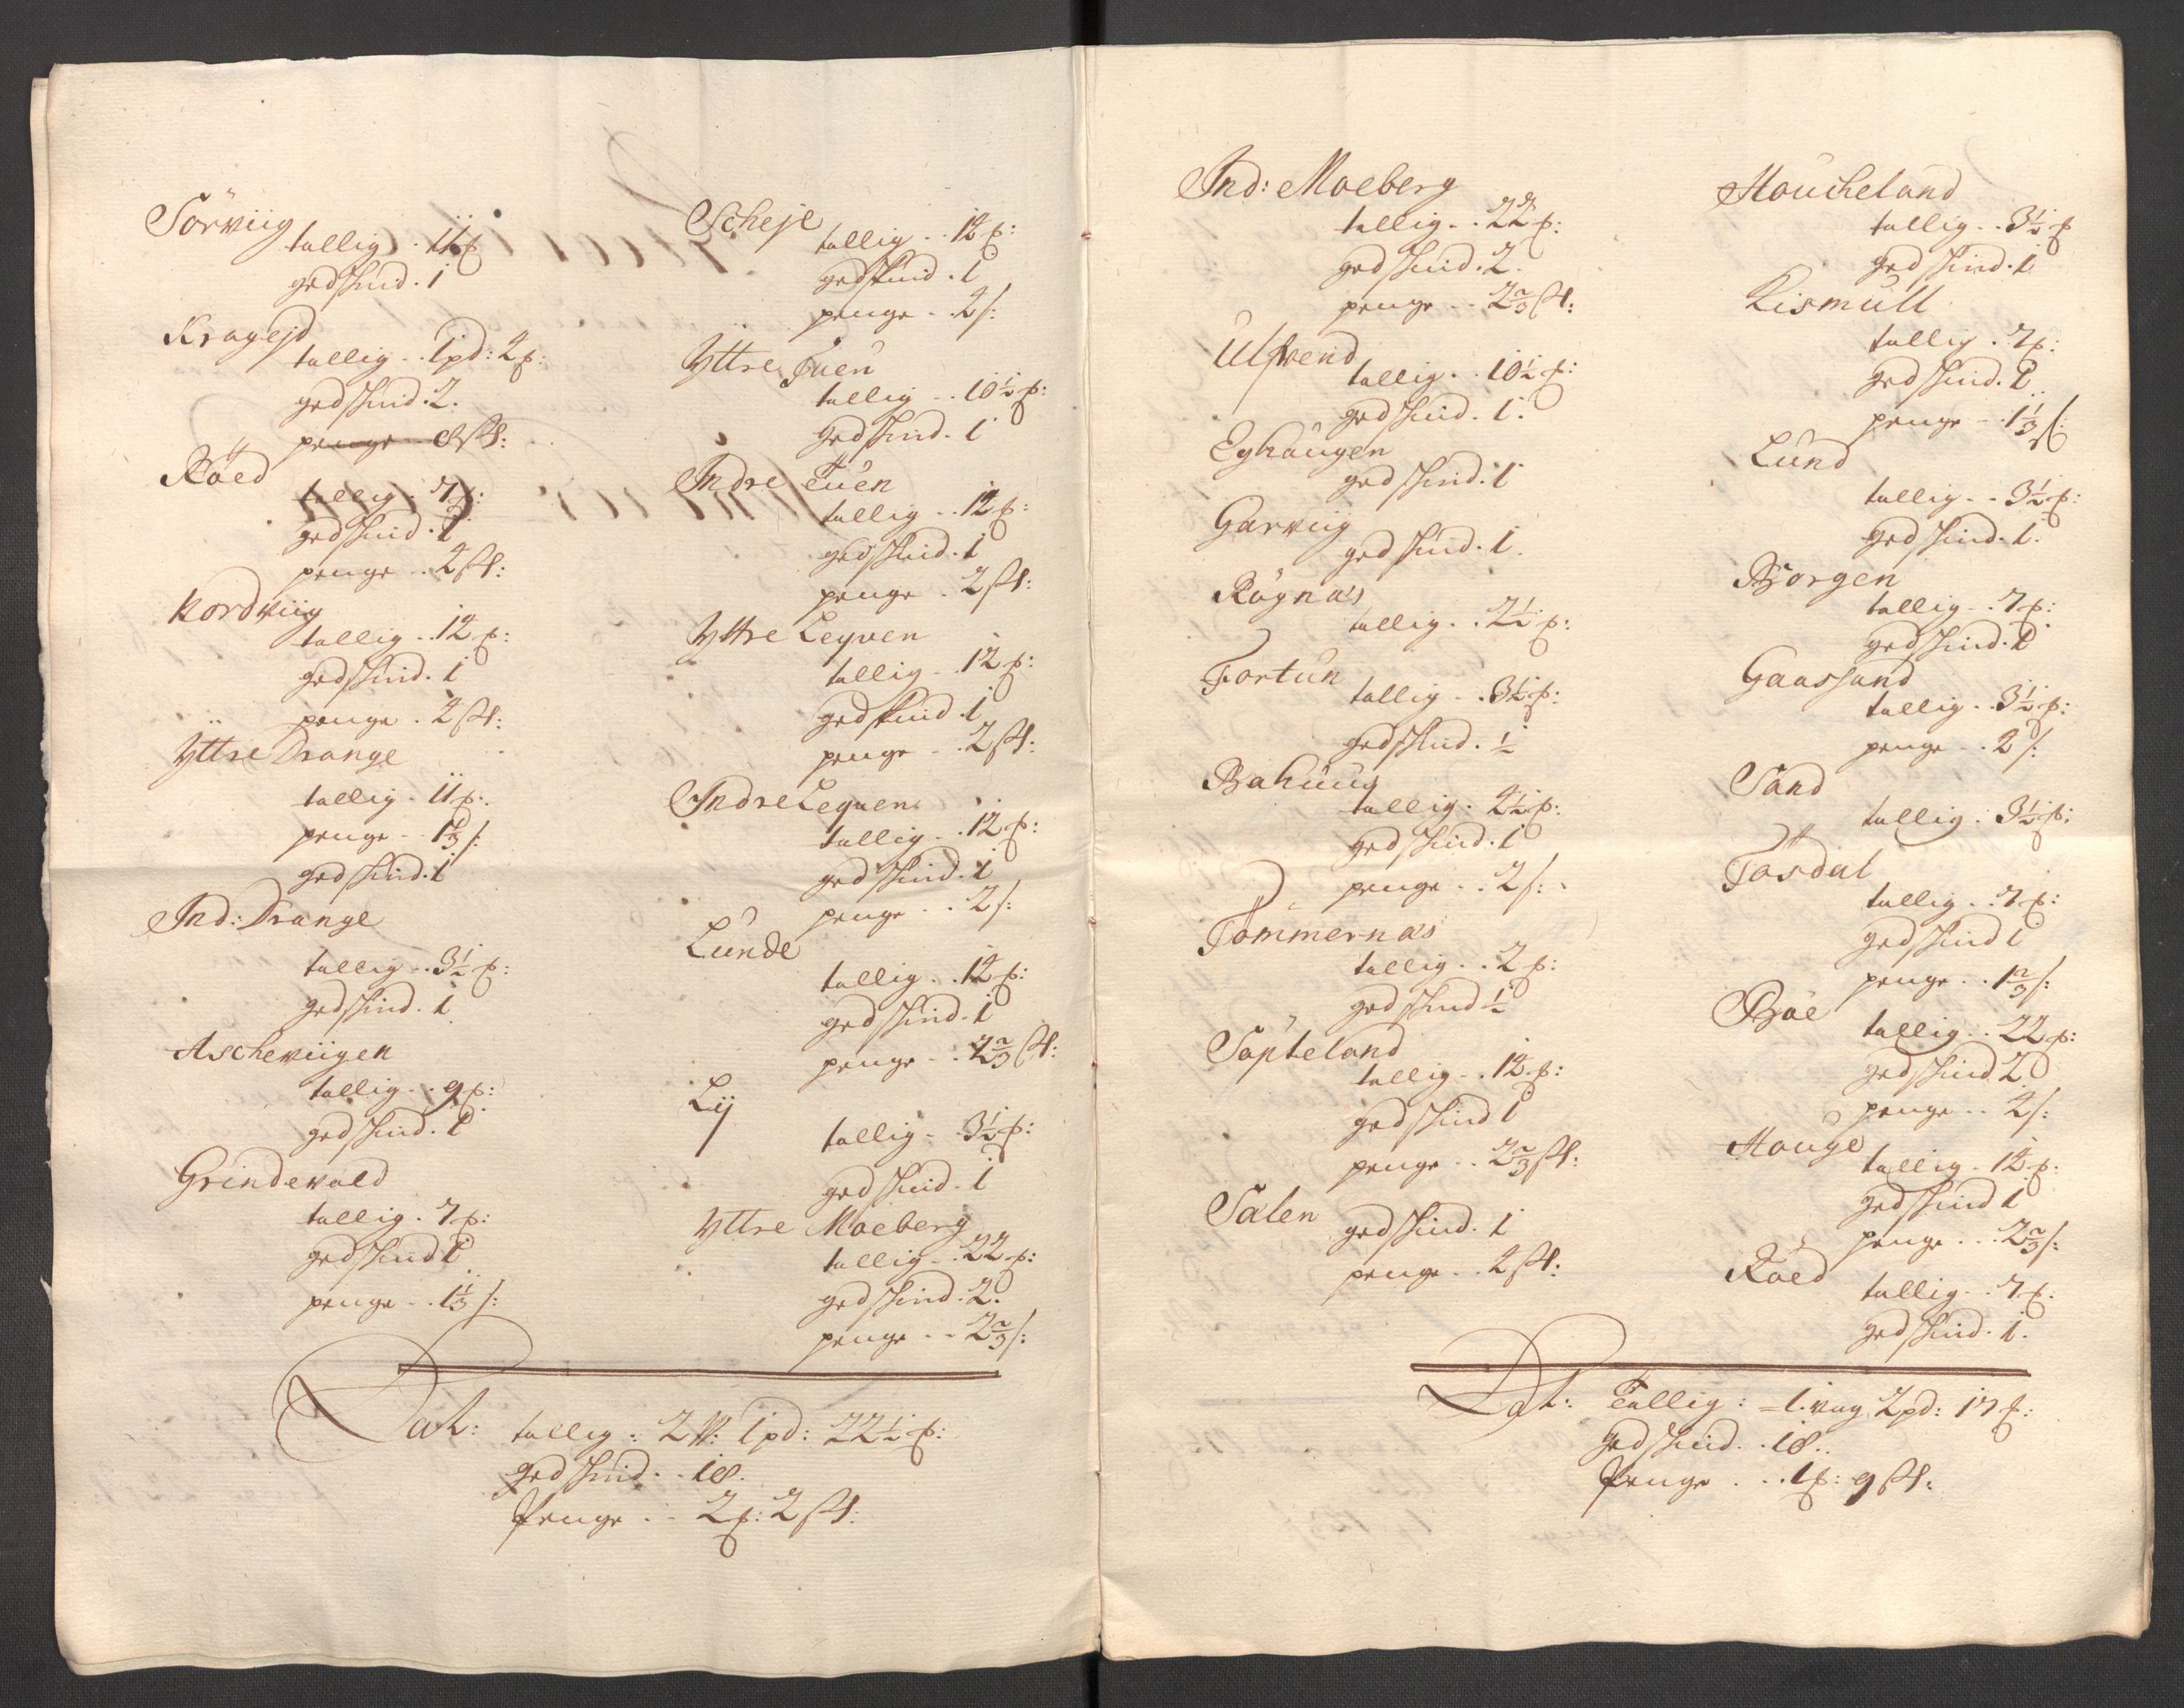 Sörviig
tallig . 11 ℔
gedskind . 1
Kragejd
tallig . . 1 pd: 2 ℔:
gedskind . 2.
penge . . 8 sk:
Röed
tallig . 7 ℔:
gedskind . 1
penge . . 2 sk:
Kordviig
tallig . . 12 ℔:
gedskind . 1
penge . 2 sk:
Yttre Drange
tallig . 11 ℔:
penge . . 1⅓ s:
gedskind . 1
Ind: Drange
tallig . . 3½ ℔:
gedskind . 1
Ascheviigen
tallig . . 9 ℔:
gedskind . 1
Grindevold
tallig . 7 ℔:
gedskind 1
penge . . 1⅓ s:
Scheje
tallig . . 12 ℔:
gedskind . 1
penge . . 2 s:
Yttre Tuen
tallig . . 10½ ℔:
gedskind . 1
Indre Tuen
tallig . . 12 ℔:
gedskind . 1
penge . 2 sk:
Yttre Leqven
tallig . . 12 ℔:
gedskind . 1
penge . . 2 sk:
Indre Leqven
tallig . . 12 ℔:
gedskind . 1
penge . . 2 s:
Lunde
tallig . . 12 ℔:
gedskind . 1
penge . . 2⅔ sk:
Lij
tallig . . 3½ ℔:
gedskind . 1
Yttre Moeberg
tallig . . 22 ℔:
gedskind . 2.
penge . . 2⅔ s:
Lat: tallig : 2 W: 1 pd: 22½ ℔:
gedskind . . 18.
Penge . . 2 ℔: 2 sk:
Ind: Moeberg
tallig . . 22 ℔:
gedskind . 2.
penge . . 2⅔ sk:
Ulfvend
tallig . . 10½ ℔:
gedskind . 1.
Eghaugen
gedskind . 1
Garviig
gedskind . 1.
Rögnæs
tallig . . 2½ ℔:
Fortun
tallig . . 3½ ℔:
gedskind . ½
Bahuus
tallig . 2½ ℔:
gedskind . 1
penge . . 2 s:
Tömmernæs
tallig . . 2 ℔:
gedskind ½
Söpteland
tallig . . 12 ℔:
gedskind 1
penge . . 2⅔ sk:
Salen
gedskind . 1
penge . . 2 sk:
Houcheland
tallig . . 3½ ℔
gedskind . 1
Kismull
tallig . 7 ℔:
gedskind . 1
penge . . 1⅓ s:
Lund
tallig . . 3½ ℔:
gedskind . 1.
Borgen
tallig . . 7 ℔:
gedskind . 1
Gaassand
tallig . . 3½ ℔:
penge . . 2 s:
Sand
tallig . 3½ ℔:
Tösdal
tallig . . 7 ℔:
gedskind 1
penge . . 1⅔ s:
Böe
tallig . . 22 ℔:
gedskind 2
penge . . 2 s:
Houge
tallig . 12 ℔:
gedskind 1
penge . . . 2⅔ s:
Röed
tallig . . 7 ℔.
gedskind . 1.
Lat: Tallig : = 1 vog 2 pd: 17 ℔:
Gedskind . . 18..
Penge . . . 1 ℔: 9 sk: